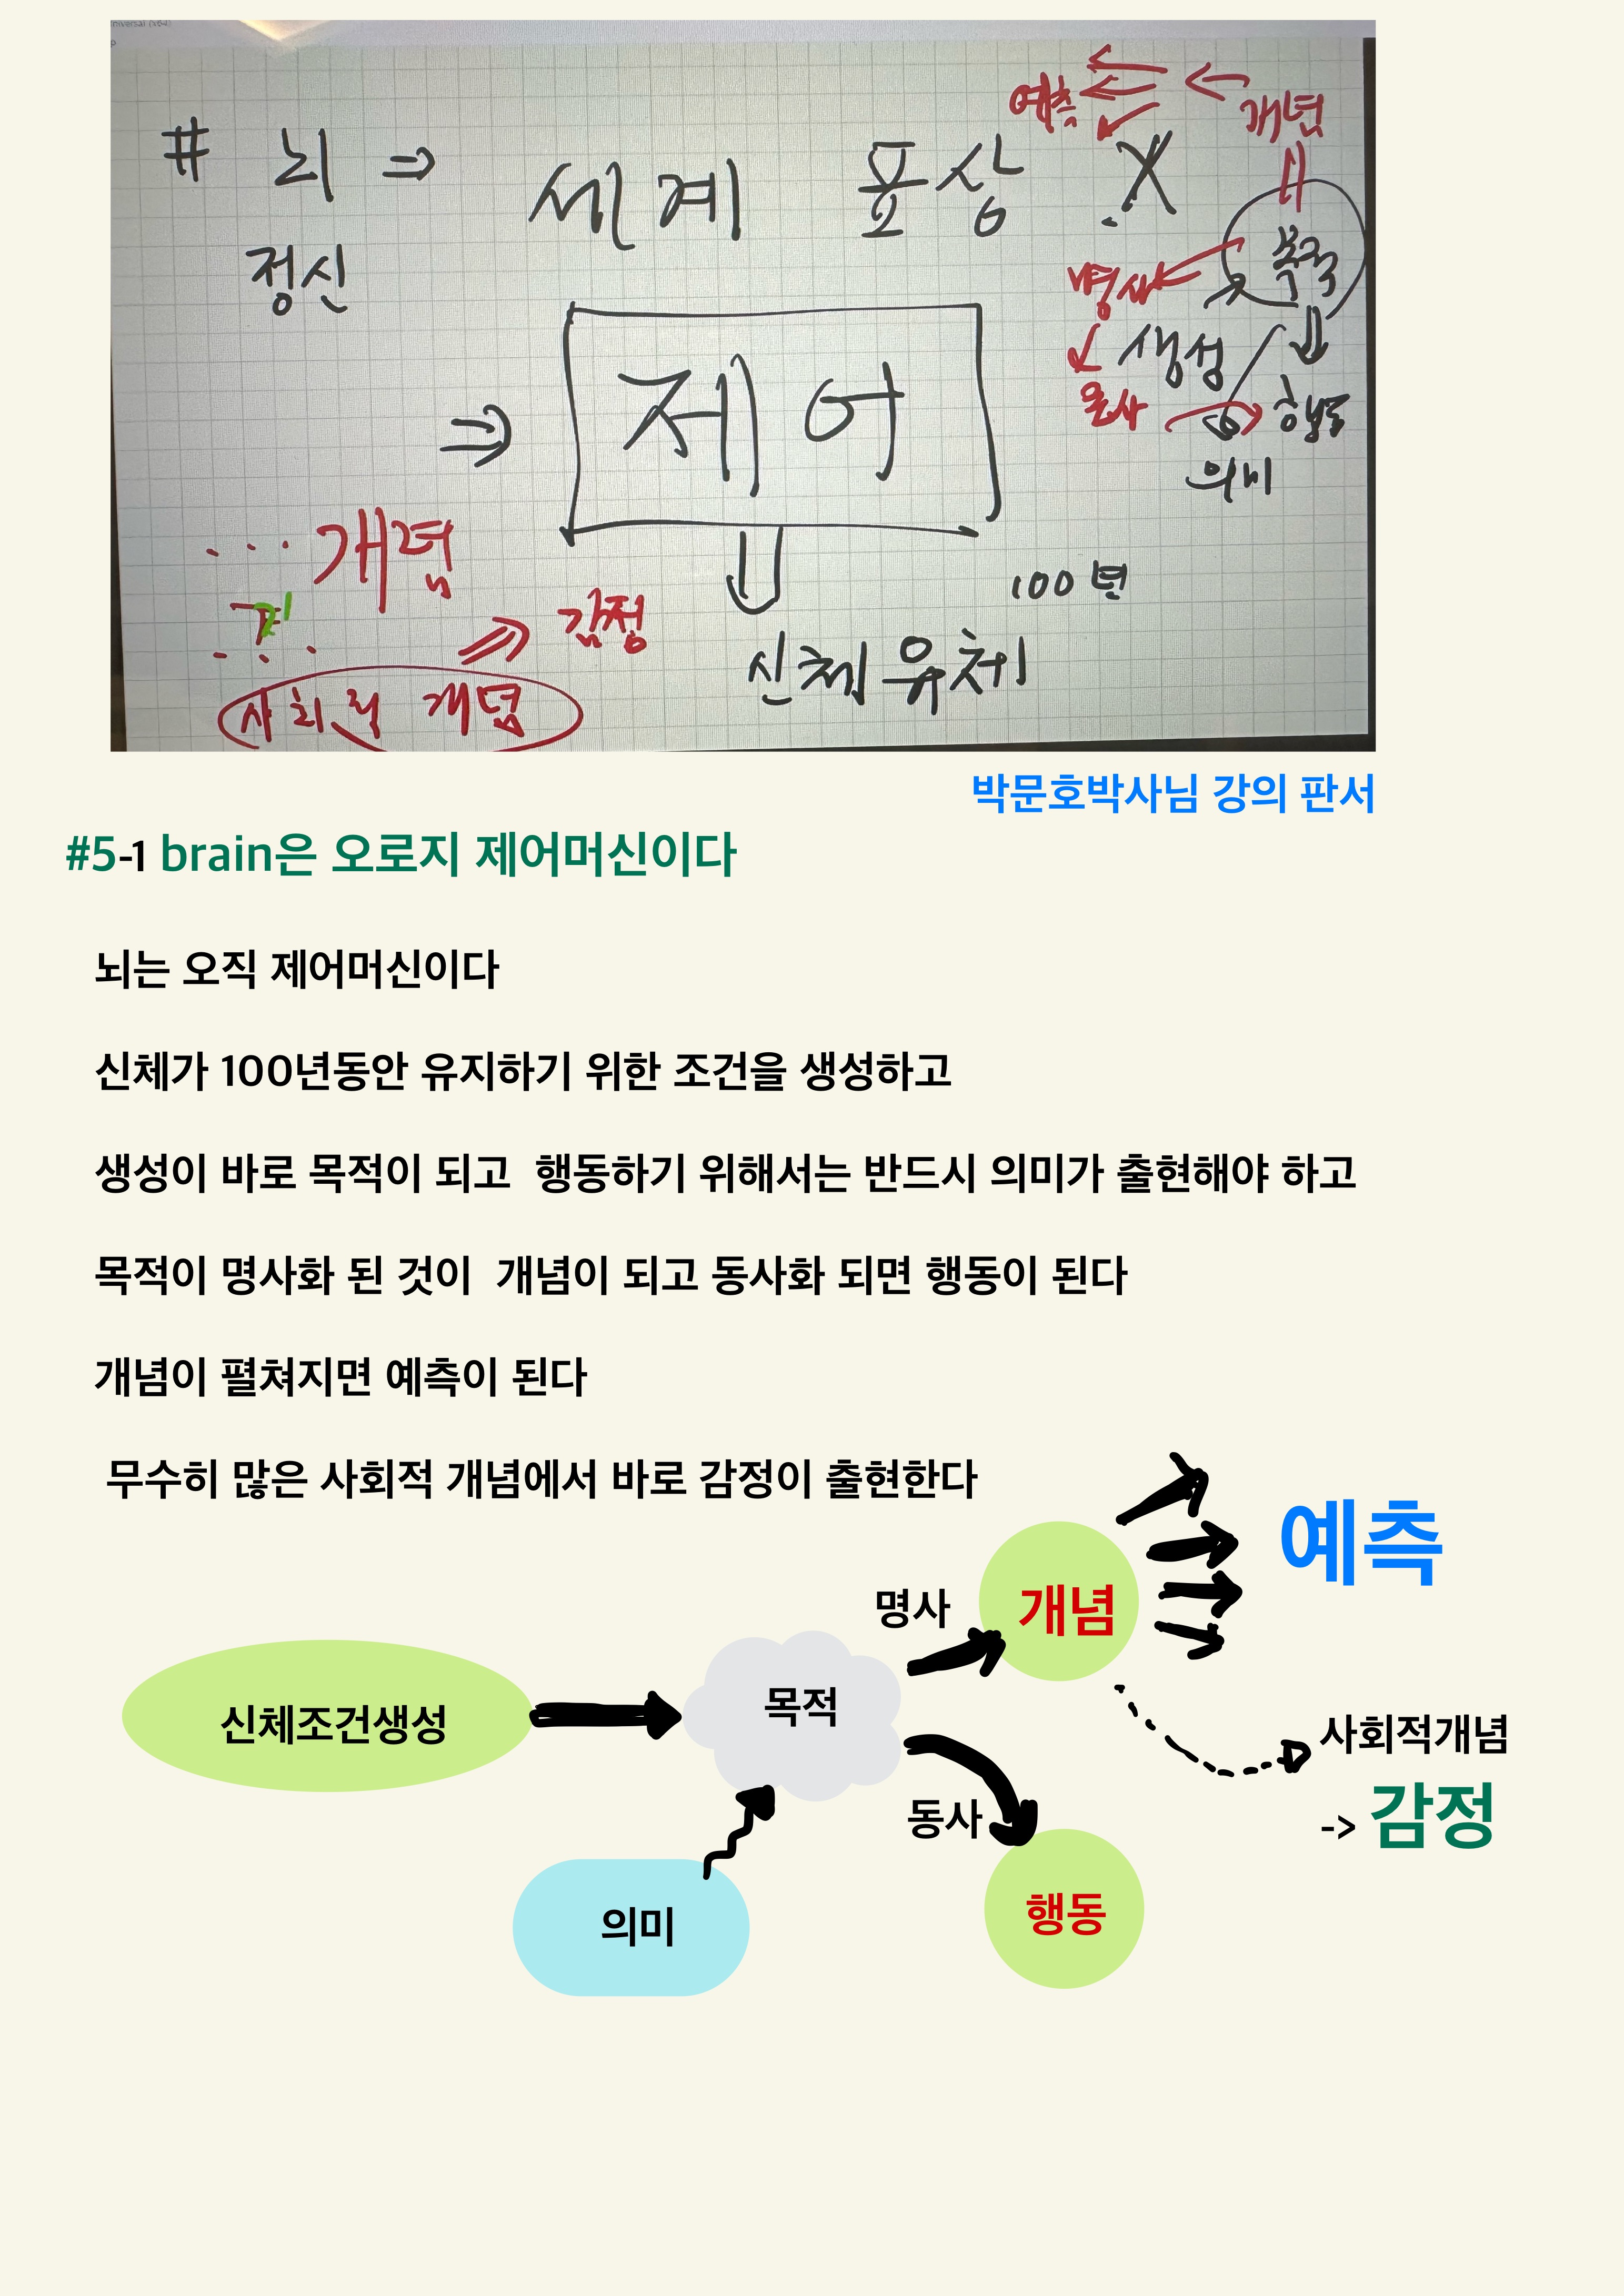 # 뇌 ⇒ 세계 표상 X
정신
예측 개념
명사
생성
동사 행동
의미
⇒ 제어
개념
감정
100년
신체유지
사회적 개념
박문호박사님 강의 판서
#5-1 brain은 오로지 제어머신이다
뇌는 오직 제어머신이다
신체가 100년동안 유지하기 위한 조건을 생성하고
생성이 바로 목적이 되고 행동하기 위해서는 반드시 의미가 출현해야 하고
목적이 명사화 된 것이 개념이 되고 동사화 되면 행동이 된다
개념이 펼쳐지면 예측이 된다
무수히 많은 사회적 개념에서 바로 감정이 출현한다
예측
명사 개념
신체조건생성 목적
사회적개념
동사 -> 감정
의미 행동